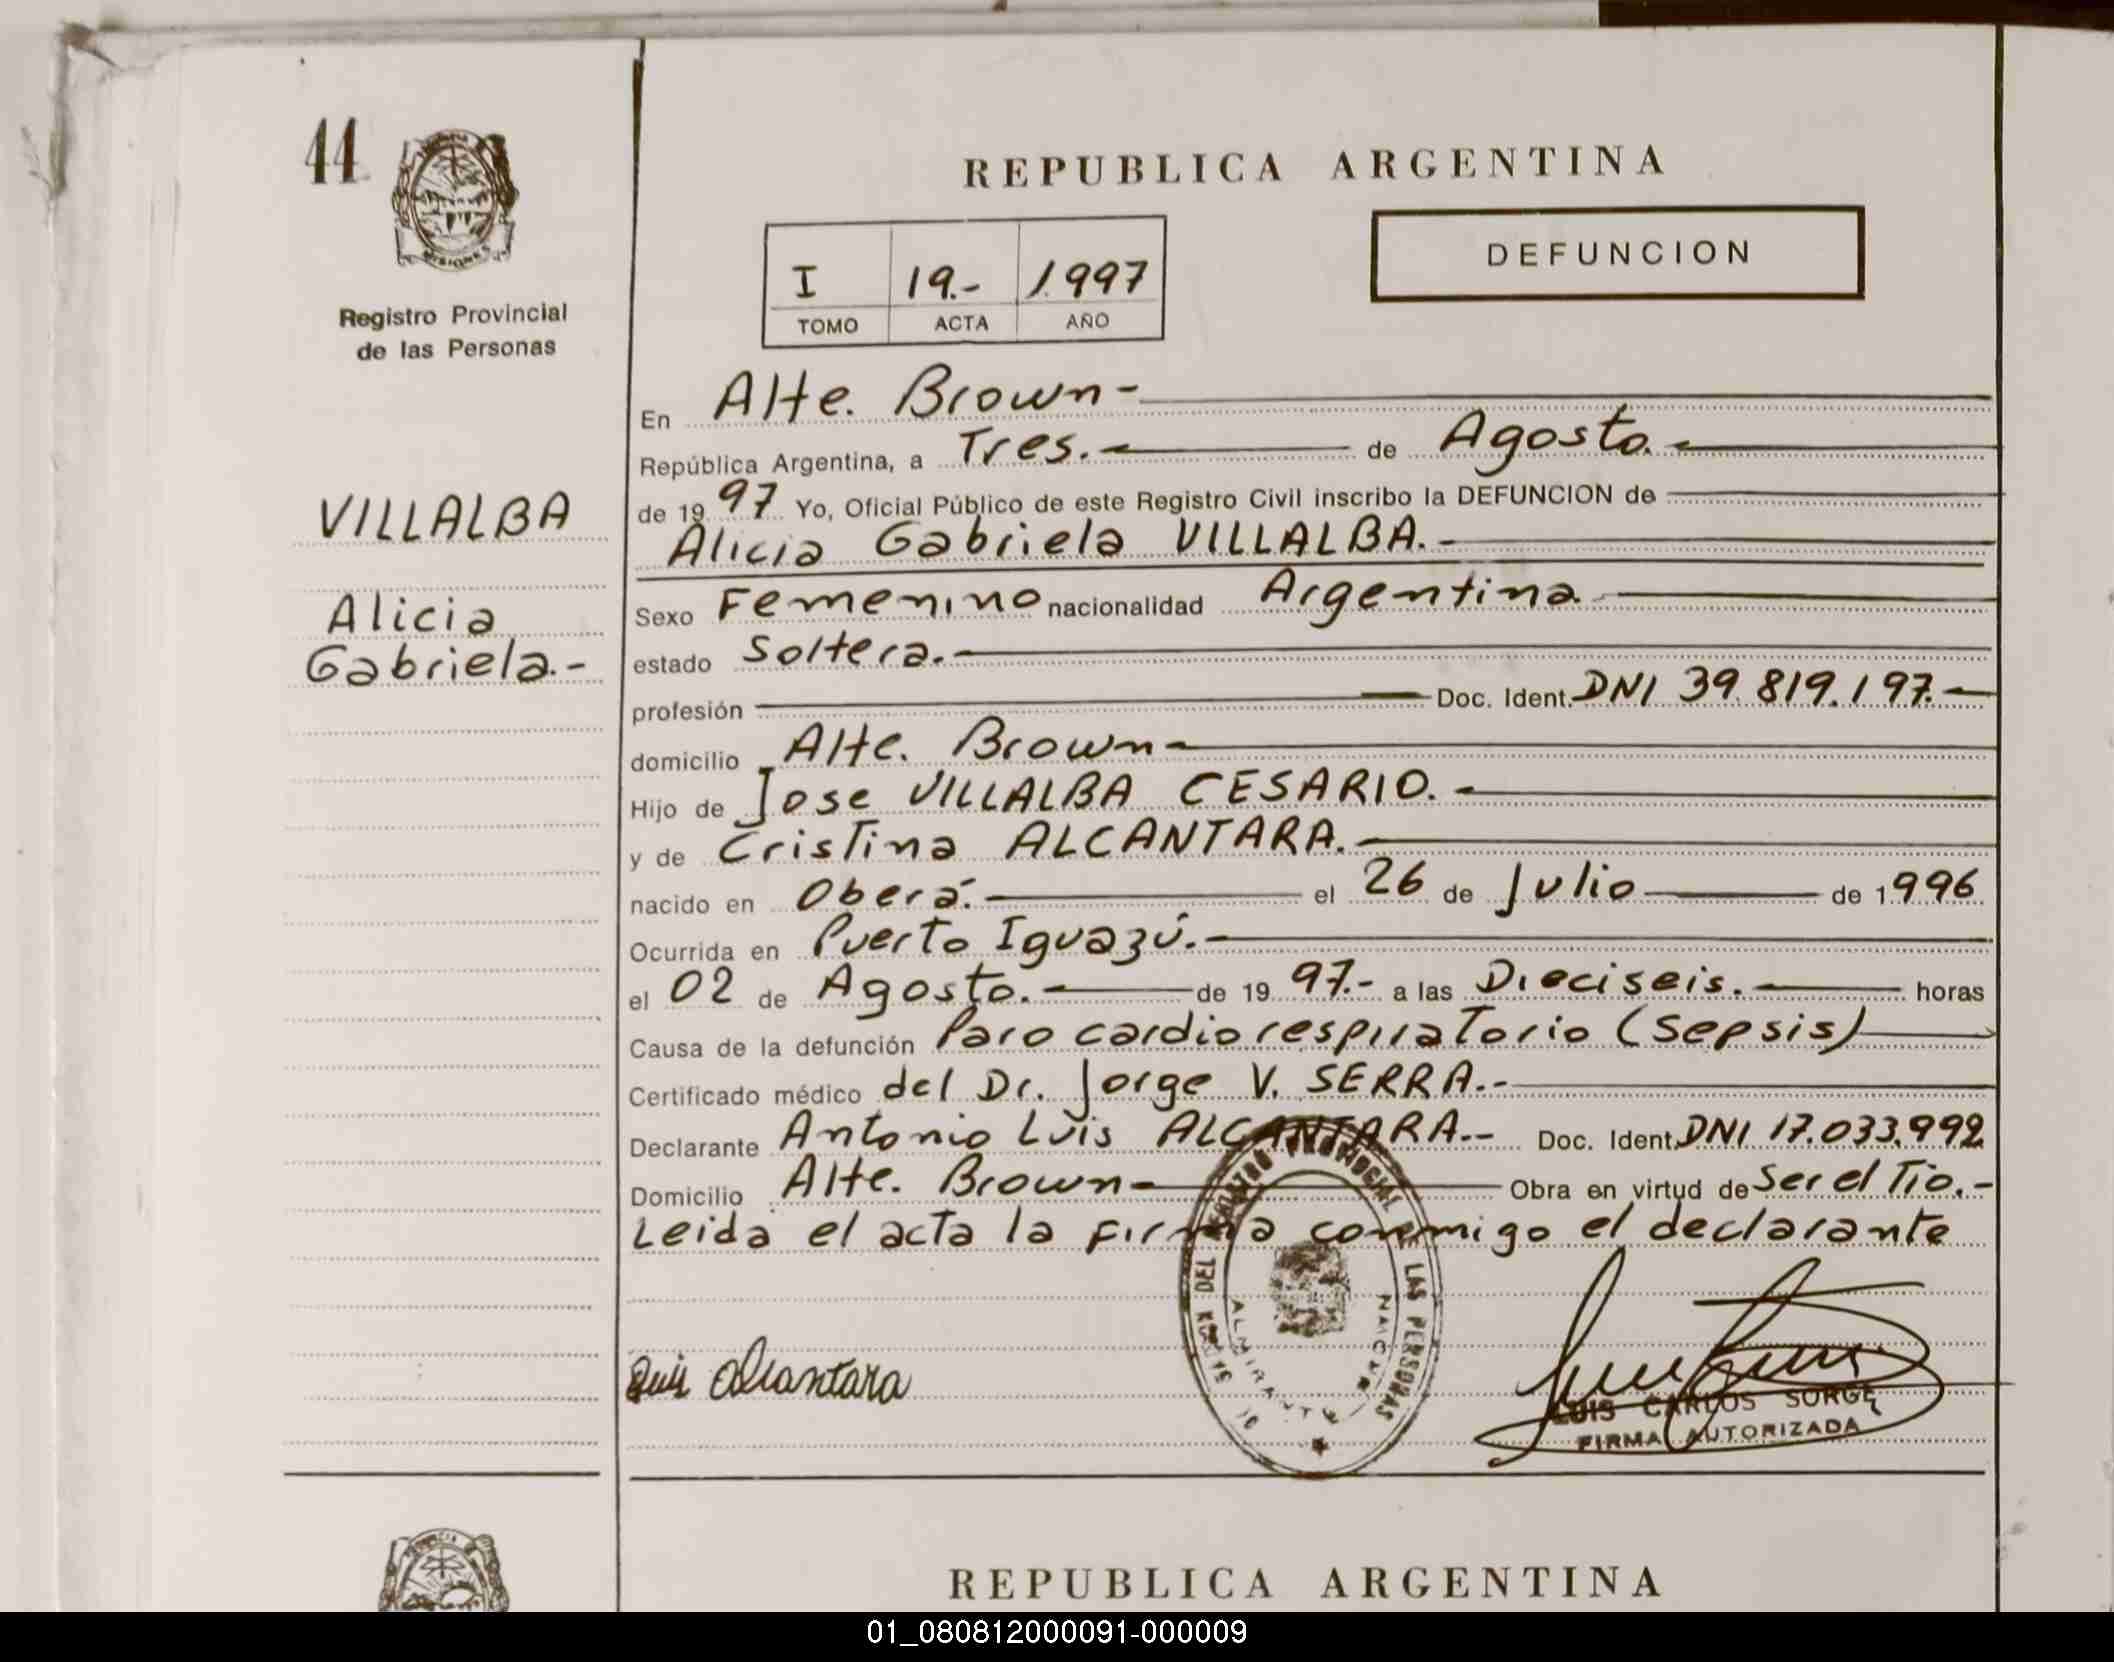 44
Registro Provincial
de las Personas
VILLALBA
Alicia
Gabriela.-
REPUBLICA ARGENTINA
I 19.- 1997
TOMO ACTA AÑO
DEFUNCION
En Alte. Brown-
República Argentina, a Tres. de Agosto.
de 1997 Yo, Oficial Público de este Registro Civil inscribo la DEFUNCION de
Alicia Gabriela VILLALBA.
Sexo Femenino nacionalidad Argentina
estado Soltera.
profesión Doc. Ident. DNI 39.819.197.-
domicilio Alte. Brown-
Hijo de Jose VILLALBA CESARIO.-
y de Cristina ALCANTARA.
nacido en Oberá. el 26 de Julio de 1996
Ocurrida en Puerto Iguazú.-
el 02 de Agosto. de 1997.- a las Dieciseis. horas
Causa de la defunción Paro cardiorespiratorio (Sepsis)
Certificado médico del Dr. Jorge V. SERRA.-
Declarante Antonio Luis ALCANTARA.- Doc. Ident. DNI 17.033.992
Domicilio Alte. Brown- Obra en virtud de Ser el Tio.-
Leida el acta la firma conmigo el declarante
Luis Alcantara
DEL REGISTRO PROVINCIAL DE LAS PERSONAS
ALMIRANTE
LUIS CARLOS SORGE
FIRMA AUTORIZADA
REPUBLICA ARGENTINA
01_080812000091-000009